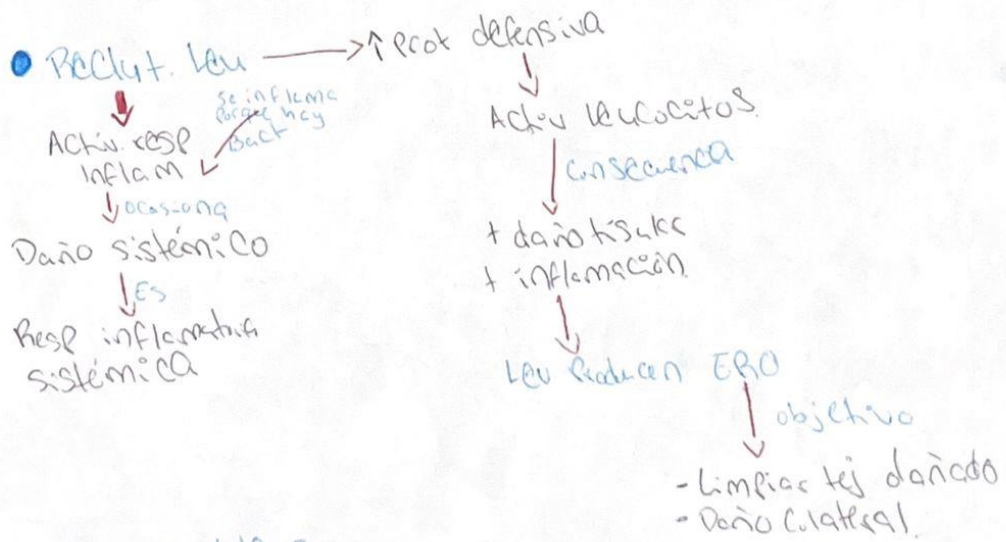 Reclut. Leu
↑ prot defensiva
Activ. resp
Inflam
se inflama
porque hay
Bact
ocasiona
Daño sistémico
Es
Resp inflamatoria
sistémica
Activ leucocitos
consecuencia
+ daño tisular
+ inflamación
Leu Producen ERO
objetivo
- Limpiar tej dañado
- Daño colateral